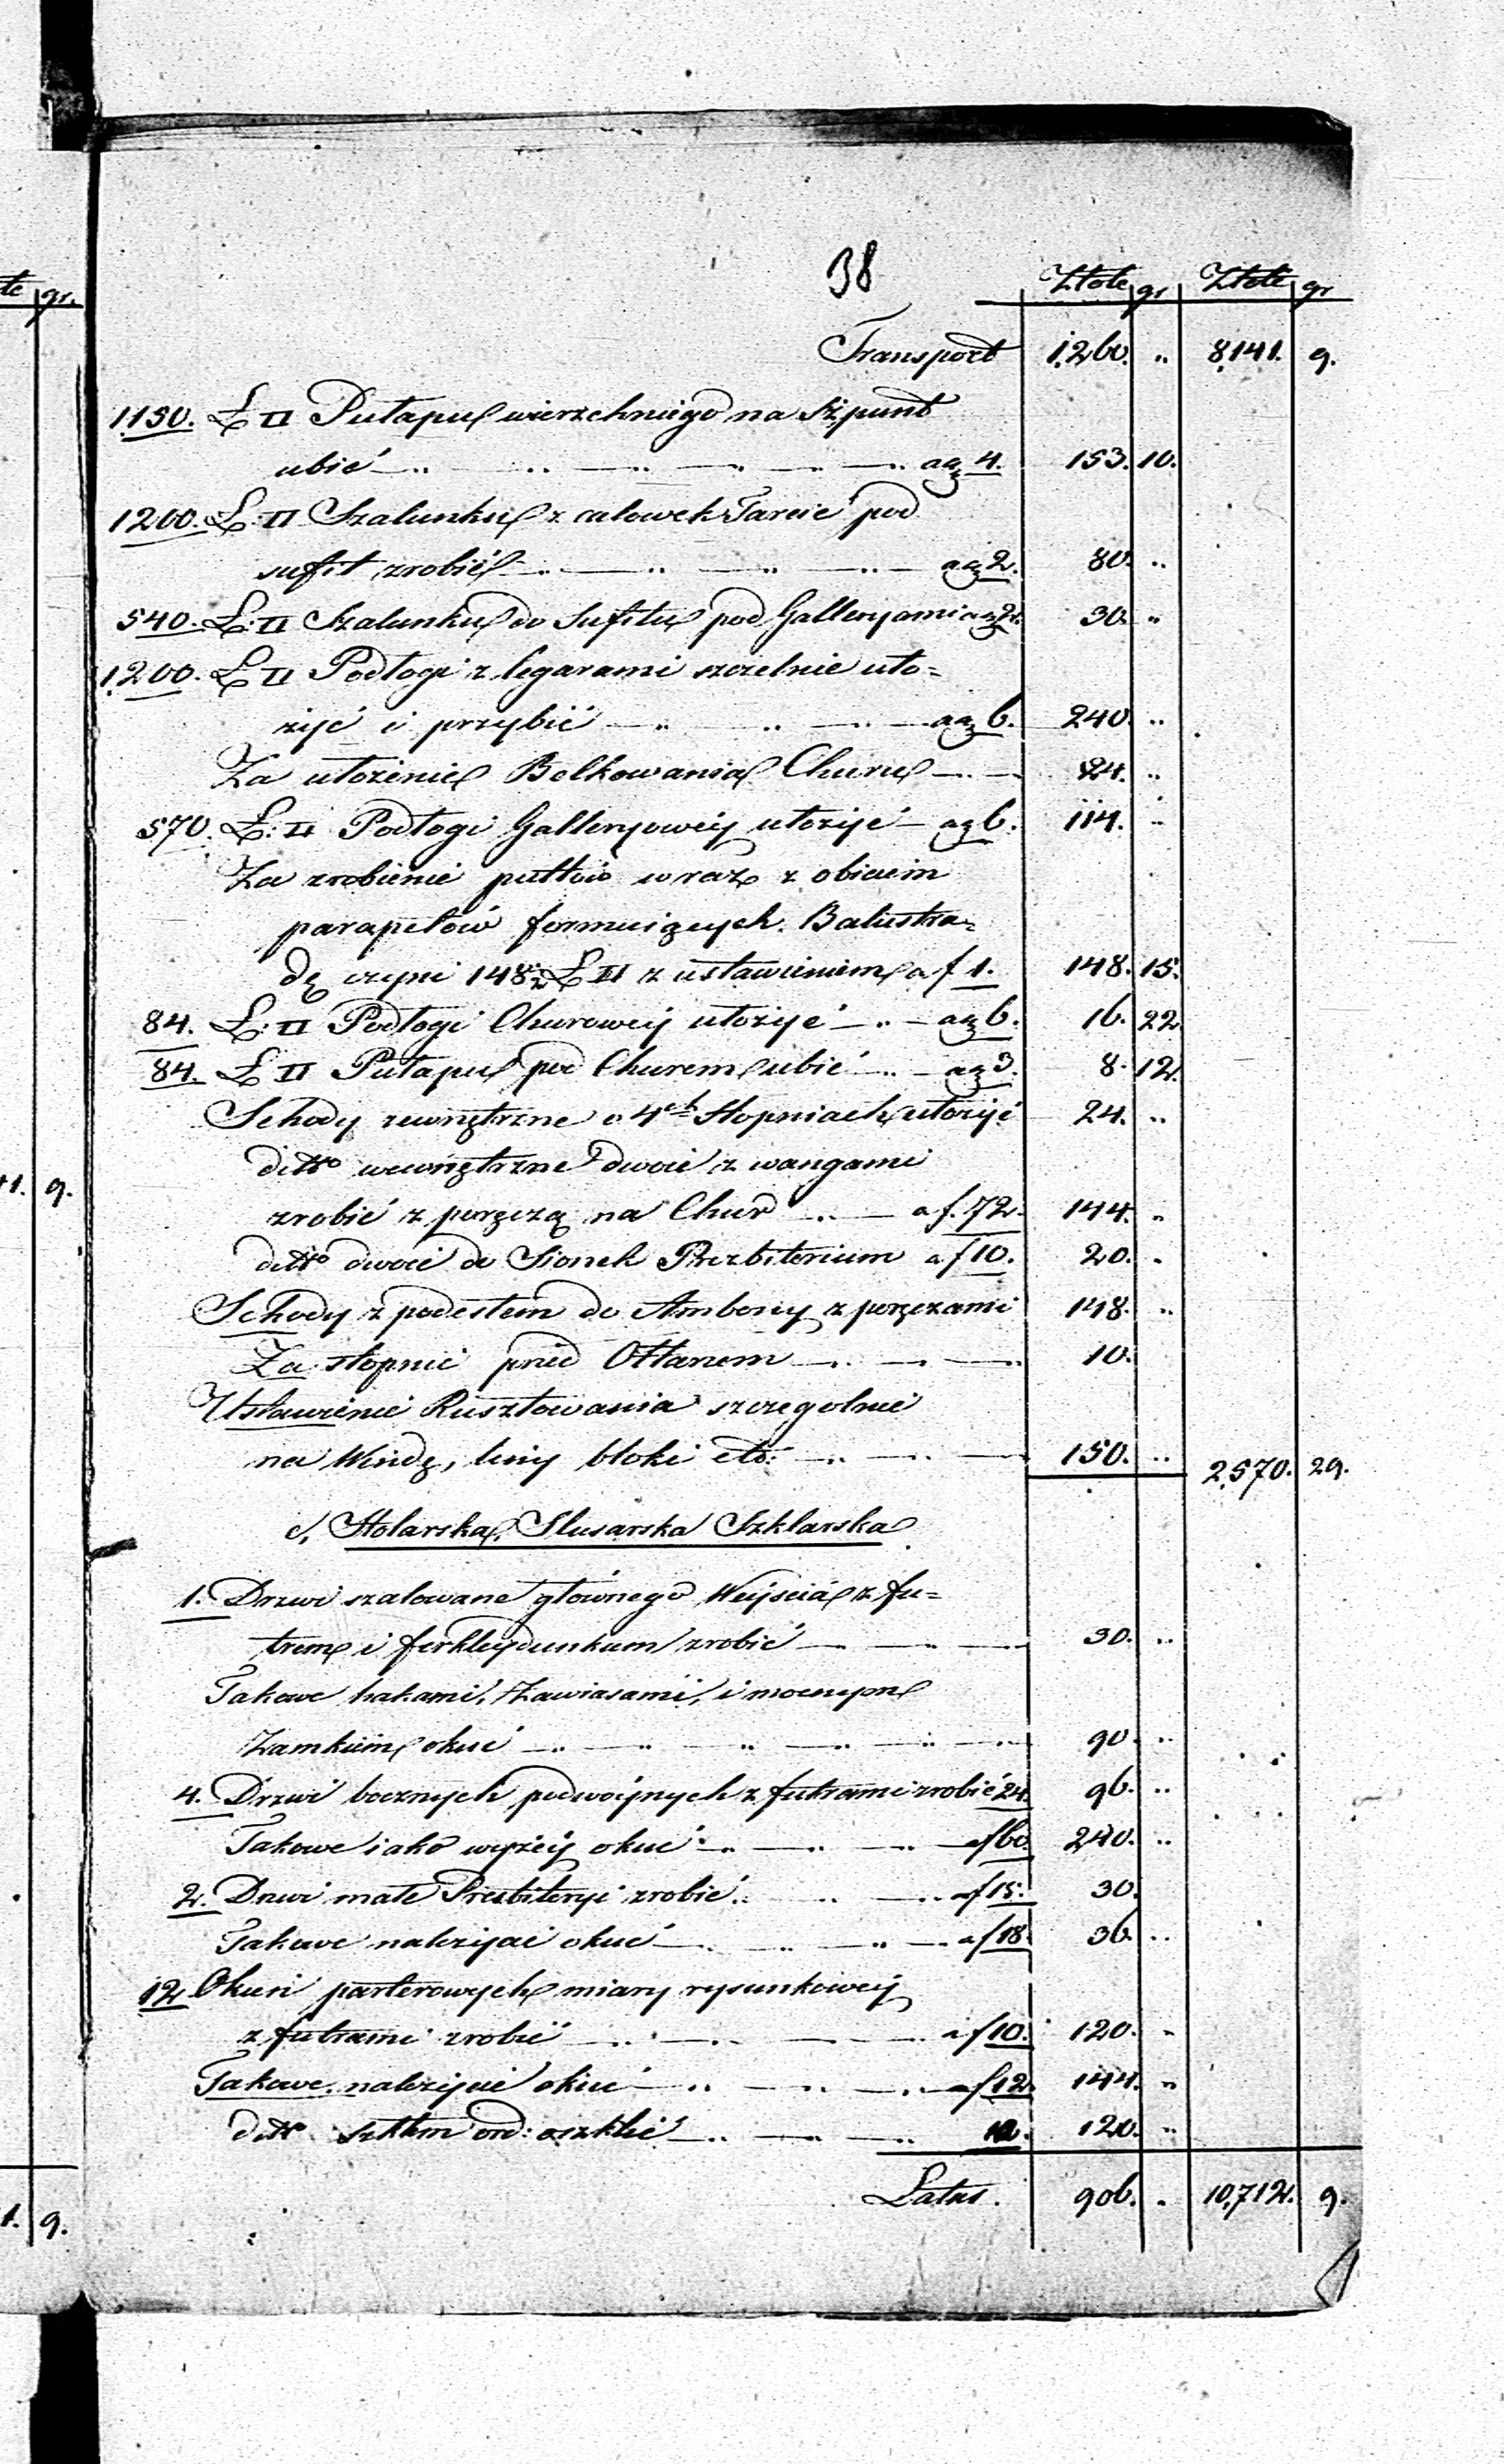 te gr.
38
Złote gr Złote gr
Transport 1,260. .. 8,141. 9.
1150. Ł □ Pułapu wierzchniego na szpunt
ubić — .. — .. — a g 4. 153. 10.
1200. Ł: □ Szalunku z calowek Tarcic pod
sufit zrobić — .. — .. — a g 2. 80. ..
540. Ł: □ Szalunku do Sufitu pod Galleryami a g 2. 30. ..
1,200. Ł □ Podłogi z legarami szczelnie uło=
żyć i przybić — .. — .. — a g 6. 240. ..
Za ułożenie Belkowania Churu — .. — 24. ..
570. Ł: □ Podłogi Galleryowéy ułożyć — a g 6. 114. ..
Za zrobienie pultów wraz z obiciem
parapetów formuiących Balustra=
dę czyni 148½ Ł □ z ustawieniem a f 1. 148. 15.
84. Ł: □ Podłogi Churowéy ułożyć — .. — a g 6. 16. 22
84. Ł □ Pułapu pod Churem ubić — .. — a g 3. 8. 12.
Schody zewnętrzne o 4ch Stopniach ułożyć 24. ..
ditto wewnętrzne dwoie z wangami
zrobić z poręczą na Chur .. — a f. 72. 144. ..
ditto dwoie do Sionek Prezbiterium a f 10. 20. ..
Schody z podestem do Ambony z poręczami 148. ..
Za stopnie przed Ołtarzem — .. — 10.
Ustawienie Rusztowania szczególnie
na Windę, liny bloki etc: — .. — 150. .. 2,570. 29.
c, Stolarska, Slusarska Szklarska
1. Drzwi szalowane głównego Weyścia z fu=
trem i ferkleydunkum zrobić — .. — 30. ..
Takowe hakami, Zawiasami, i mocnym
Zamkiem okuć — .. — .. — .. — 90. ..
4. Drzwi bocznych podwóynych z futrami zrobić 24. 96. ..
Takowe iako wyżéy okuć — .. — .. — a f 60. 240. ..
2. Drzwi małe Prezbiteryi zrobić .. — .. a f 15. 30.
Takowe należycie okuć — .. — .. — a f 18. 36. ..
12 Okien parterowych miary rysunkowéy
z futrami zrobić — .. — .. — a f 10. 120. ..
Takowe należycie okuć — .. — .. — a f 12. 144. ..
ditto Szkłem ord: oszklić — .. — .. 10. 120. ..
Latus. 906. .. 10,712. 9.
1. 9.
1. 9.